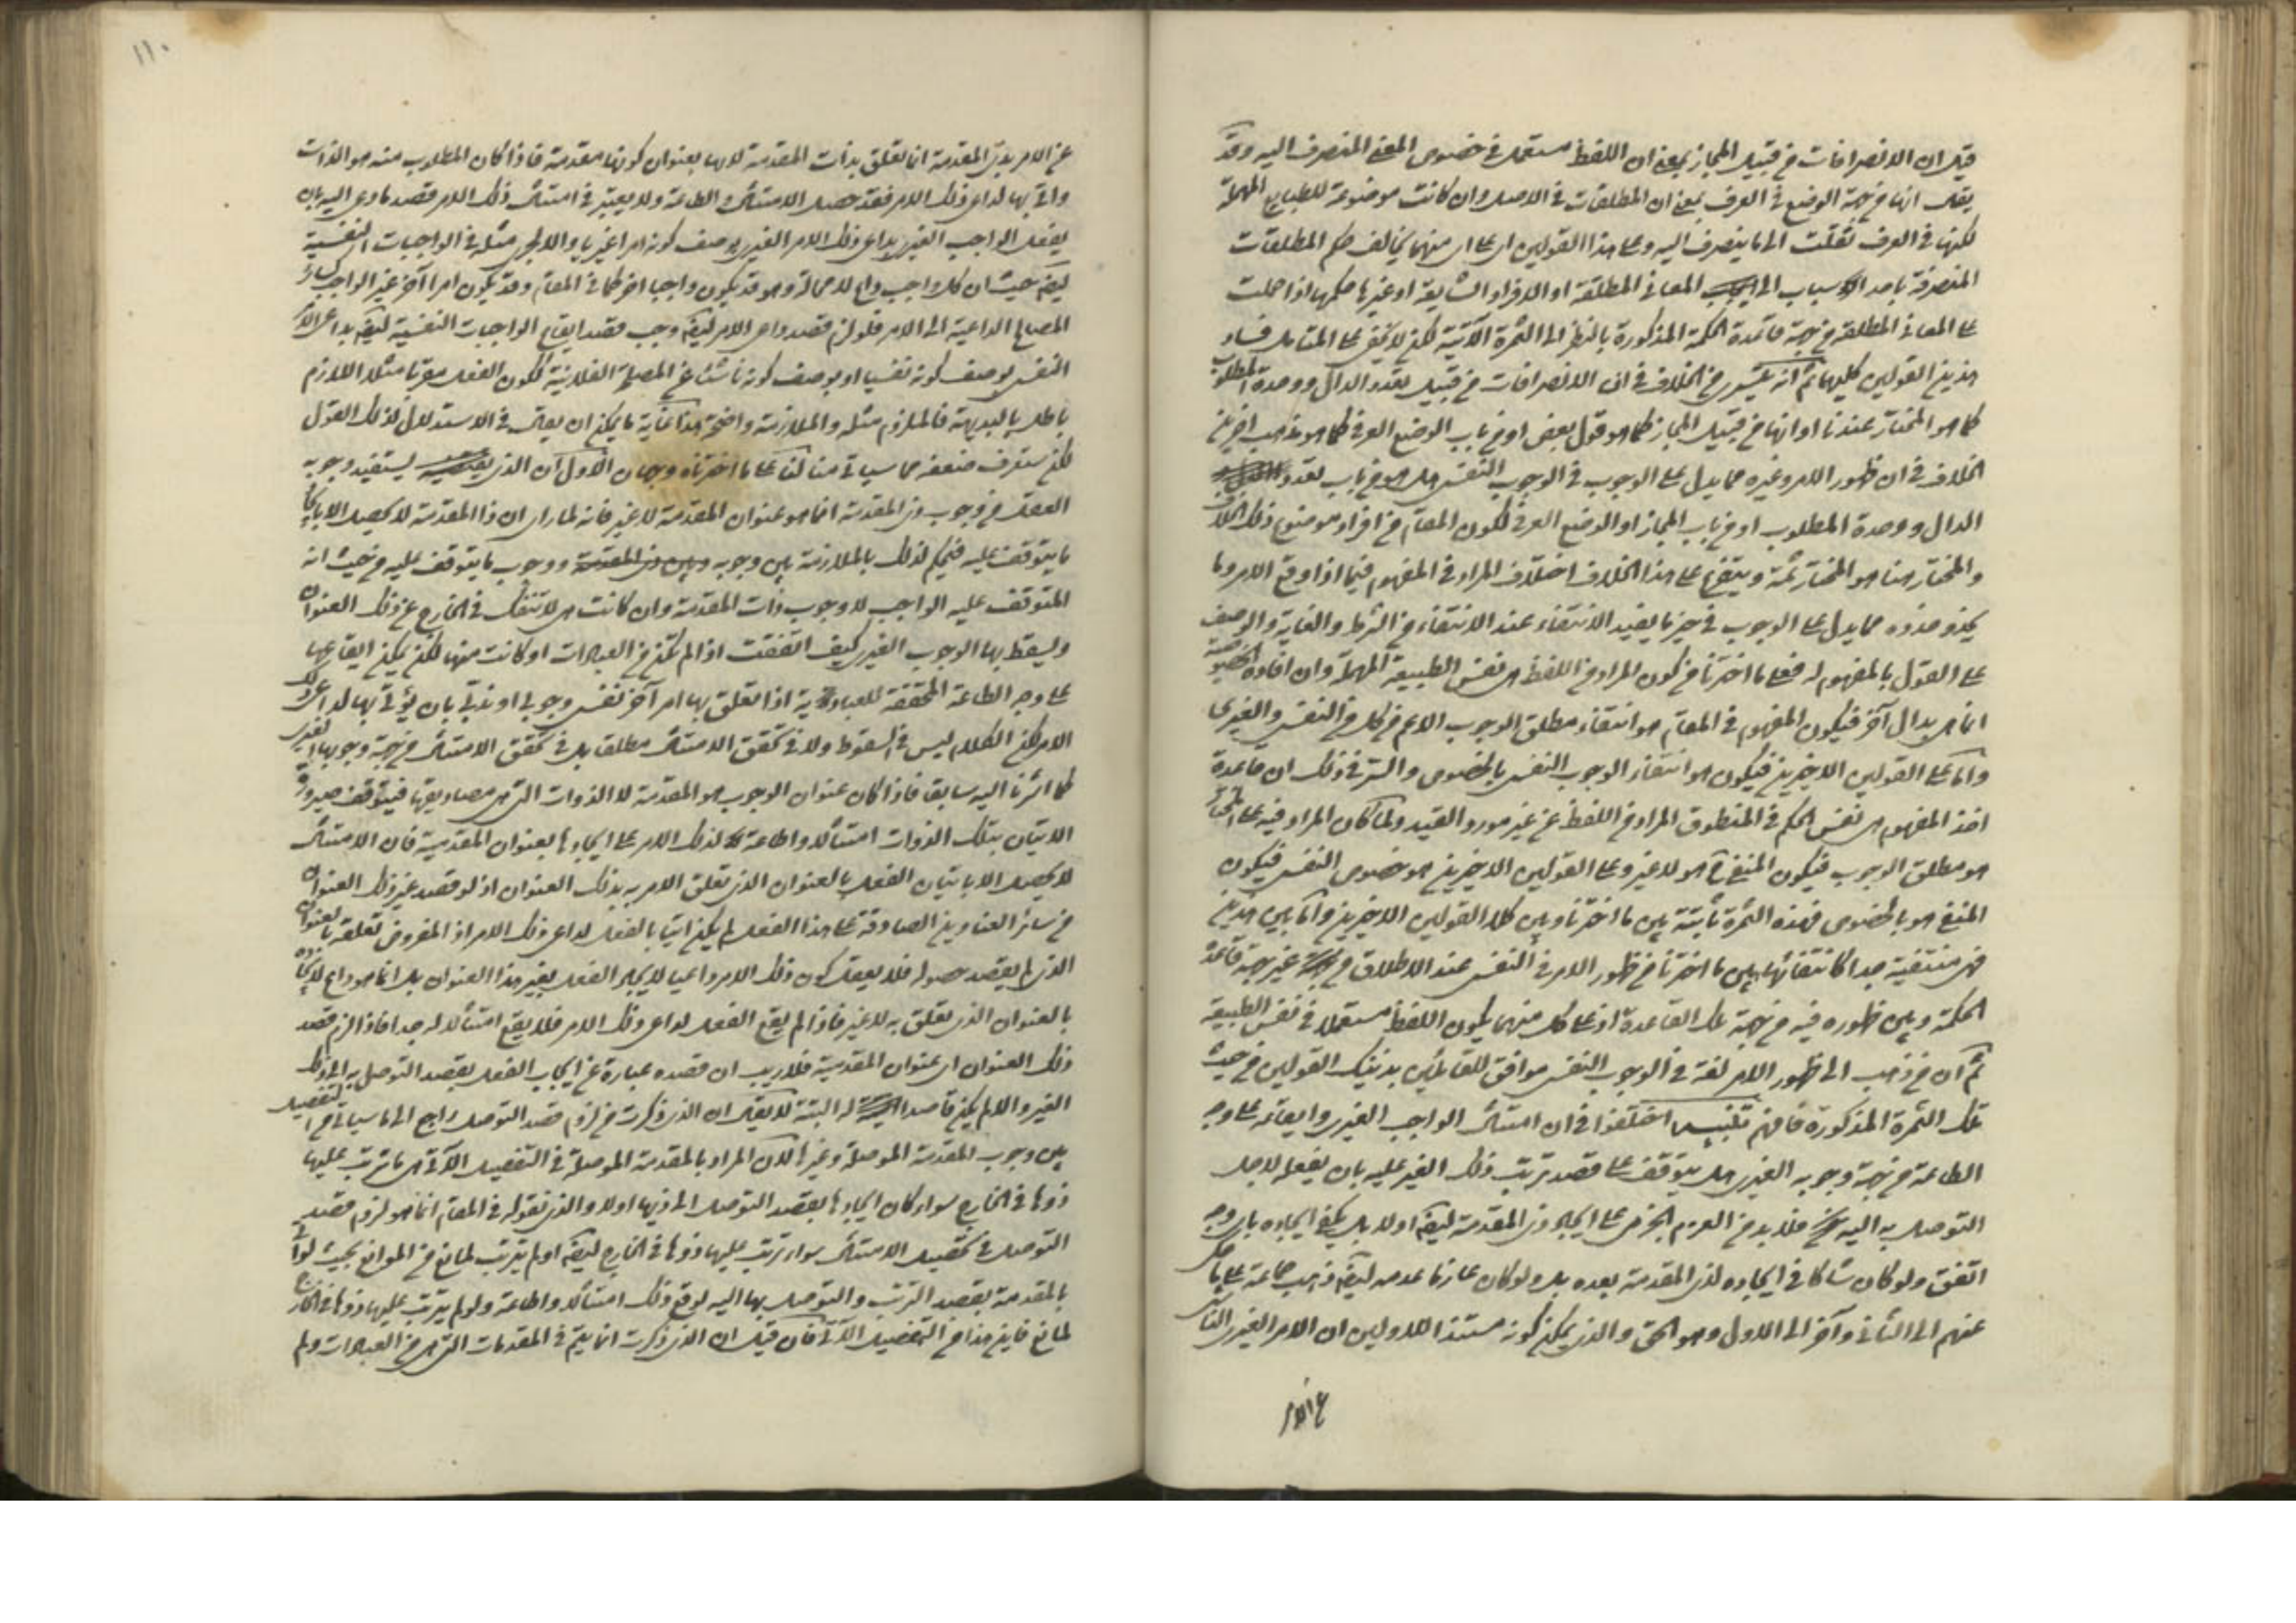 قيل ان الانصرافات من قبيل المجاز بمعنى ان اللفظ مستعمل في خصوص المعنى المنصرف اليه وقد
يقال انها من جهة الوضع في العرف بمعنى ان المطلقات في الاصل وان كانت موضوعة للطبايع المهملة
لكنها في العرف نقلت الى ما ينصرف اليه وعلى هذا القولين اي على اي منهما يخالف حكم المطلقات
المنصرفة باحد الاسباب الى المعاني المطلقة او الافراد الشايعة او غيرها حكمها اذا حملت
على المعاني المطلقة من جهة قاعدة الحكمة المذكورة بالنظر الى الثمرة الآتية لكن لا يخفى على المتأمل فساد
هذين القولين كليهما ثم انه يتسرى من الخلاف في ان الانصرافات من قبيل تعدد الدال ووحدة المطلوب
كما هو المختار عندنا او انها من قبيل المجاز كما هو قول بعض او من باب الوضع العرفي كما هو مذهب اخرين
الخلاف في ان ظهور الامر وغيره مما يدل على الوجوب في الوجوب النفسي هل هو من باب تعدد
الدال ووحدة المطلوب او من باب المجاز او الوضع العرفي لكون المقام من افراد موضوع ذلك الخلاف
والمختار هنا هو المختار ثمة ويتفرع على هذا الخلاف اختلاف المراد في المفهوم فيما اذا وقع الامر وما
يحذو حذوه مما يدل على الوجوب في حيز ما يفيد الانتفاء عند الانتفاء من الشرط والغاية والوصف
على القول بالمفهوم له فعلى ما اخترنا من كون المراد من اللفظ هي نفس الطبيعة المهملة وان افادة خصوصية
انما هي بدال آخر فيكون المفهوم في المقام هو انتفاء مطلق الوجوب الاعم من كل من النفسي والغيري
واما على القولين الاخيرين فيكون هو انتفاء الوجوب النفسي بالخصوص والسر في ذلك ان قاعدة
اخذ المفهوم هي نفي الحكم في المنطوق المراد من اللفظ عن غير مورد القيد ولما كان المراد فيه على المختار
هو مطلق الوجوب فيكون المنفي ح هو لا غير وعلى القولين الاخيرين هو خصوص النفسي فيكون
المنفي هو بالخصوص فهذه الثمرة ثابتة بين ما اخترنا وبين كلا القولين الاخيرين واما بين هذين
فهي منتفية جدا كانتفائها بين ما اخترنا من ظهور الامر في النفسي عند الاطلاق من غير جهة قاعدة
الحكمة وبين ظهوره فيه من جهة تلك القاعدة اذ على كل منهما يكون اللفظ مستعملا في نفس الطبيعة
ثم ان من ذهب الى ظهور الامر لغة في الوجوب النفسي موافق للقائلين بذينك القولين من حيث
تلك الثمرة المذكورة فافهم تنبيه اختلفوا في ان امتثال الواجب الغيري وايقاعه على وجه
الطاعة من جهة وجوبه الغيري هل يتوقف على قصد ترتب ذلك الغير عليه بان يفعله لاجل
التوصل به اليه فلا بد من العزم الجزمي على ايجاد ذي المقدمة ايضا اولا بل يكفي ايجاده باي وجه
اتفق ولو كان شاكا في ايجاده لذي المقدمة بعده بل ولو كان عازما عدمه ايضا ذهب جماعة على ما حكي
عنهم الى الثاني وآخر الى الاول وهو الحق والذي يمكن كونه مستندا للاولين ان الامر الغيري الناشي
عن الامر
١١٠
عن الامر بذي المقدمة انما تعلق بذات المقدمة لا بها بعنوان كونها مقدمة فاذا كان المطلوب منه هو الذات
واتى بها لداعي ذلك الامر فقد حصل الامتثال والطاعة ولا يعتبر في امتثال ذلك الامر قصد ما دعى اليه بان
يفعل الواجب الغيري بداعي ذلك الامر الغيري بوصف كونه امرا غيريا والا لجرى مثله في الواجبات النفسية
ايضا حيث ان كل واجب داع لا محالة وهو قد يكون واجبا اخر كما في المقام وقد يكون امرا آخر غير الواجب كسائر
المصالح الداعية الى الامر فلو لزم قصد داعي الامر ايضا وجب قصد ايقاع الواجبات النفسية ايضا بداعي الامر
النفسي بوصف كونه نفسيا او بوصف كونه ناشئا عن المصلحة الفلانية لكون الفعل مقربا مثلا اللازم
باطل بالبديهة فالملزوم مثله والملازمة واضحة هذا غاية ما يمكن ان يقال في الاستدلال لذلك القول
لكن ستعرف ضعفه مما سيأتي منا لنا على ما اخترناه وجهان الاول ان الذي يستفيد وجوبه
العقل من وجوب ذي المقدمة انما هو عنوان المقدمة لا غير فانه لما راى ان ذا المقدمة لا يحصل الا بايجاد
ما يتوقف عليه فيحكم لذلك بالملازمة بين وجوبه وبين ذي المقدمة ووجوب ما يتوقف عليه من حيث انه
المتوقف عليه الواجب لا وجوب ذات المقدمة وان كانت هي لا تنفك في الخارج عن ذلك العنوان
ويسقط بها الوجوب الغيري كيف اتفقت اذا لم تكن من العبادات او كانت منها لكن يمكن ايقاعها
على وجه الطاعة المحققة للعبادية اذا تعلق بها امر آخر نفسي وجوبي او ندبي بان يؤتى بها لداعي ذلك
الامر لكن الكلام ليس في السقوط ولا في تحقق الامتثال مطلقا بل في تحقق الامتثال من جهة وجوبها الغيري
كما اشرنا اليه سابقا فاذا كان عنوان الوجوب هو المقدمة لا الذوات التي هي مصاديقها فيتوقف صيرورة
الاتيان بتلك الذوات امتثالا واطاعة لذلك الامر على ايجادها بعنوان المقدمية فان الامتثال
لا يحصل الا باتيان الفعل بالعنوان الذي تعلق الامر به بذلك العنوان اذ لو قصد غير ذلك العنوان
من سائر العناوين الصادقة على هذا الفعل لم يكن اتيا بالفعل لداعي ذلك الامر اذ المفروض تعلقه بالعنوان
الذي لم يقصد حصوله فلا يعقل كون ذلك الامر داعيا لايجاد الفعل بغير هذا العنوان بل انما هو داع لايجاده
بالعنوان الذي تعلق به لا غير فاذا لم يقع الفعل لداعي ذلك الامر فلا يقع امتثالا له جدا فاذا لزم قصد
ذلك العنوان اي عنوان المقدمية فلا ريب ان قصده عبارة عن ايجاب الفعل بقصد التوصل به الى ذلك
الغير والا لم يكن قاصدا له البتة لا يقال ان الذي ذكرت من لزوم قصد التوصل راجع الى ما سيأتي من التفصيل
بين وجوب المقدمة الموصلة وغيرها لان المراد بالمقدمة الموصلة في التفصيل الآتي هي ما ترتب عليها
ذوها في الخارج سواء كان ايجادها بقصد التوصل الى ذيها اولا والذي نقوله في المقام انما هو لزوم قصد
التوصل في تحصيل الامتثال سواء ترتب عليها ذوها في الخارج ايضا او لم يترتب لمانع من الموانع بحيث لو اتى
بالمقدمة بقصد الترتب والتوصل بها اليه لوقع ذلك امتثالا واطاعة ولو لم يترتب عليها ذوها في الخارج
لمانع فاين هذا من التفصيل الآتي فان قيل ان الذي ذكرت انما يتم في المقدمات التي هي من العبادات ولم